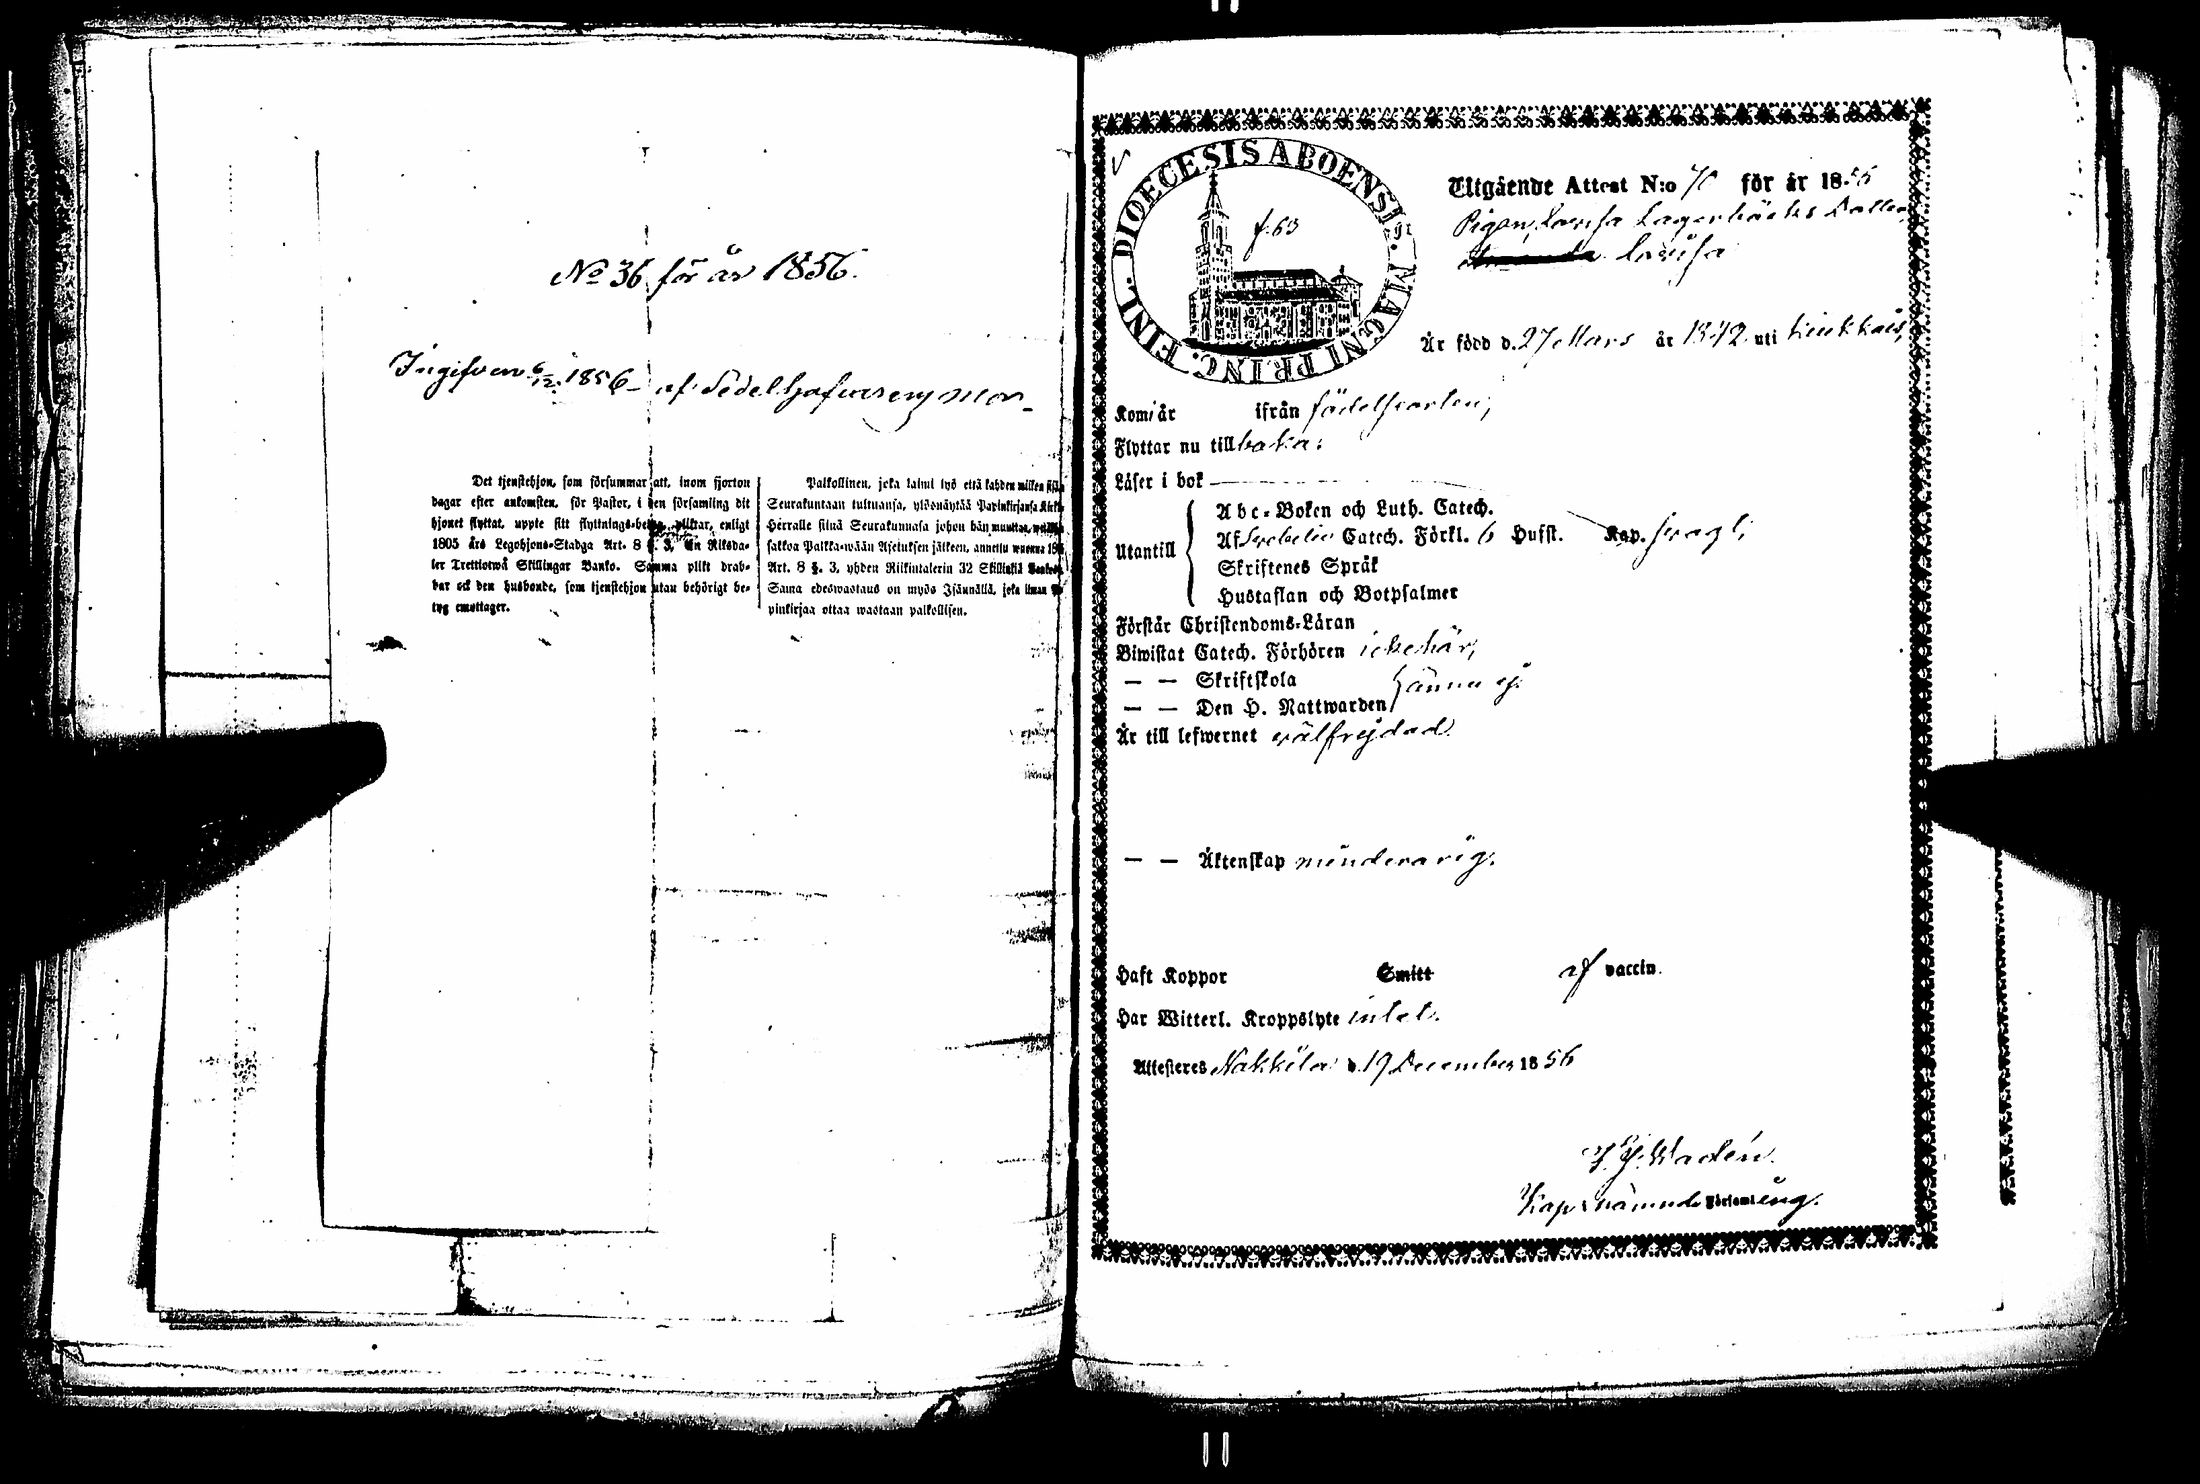 No 36 för år 1856.
Ingifven 1856 af Sedelhafverens Mor
Det tjenstehjon, som försummar att, inom fjorton
dagar efter ankomsten, för Pastor, i den församling dit
hjonet flyttat, uppte sitt flyttnings-betyg, pliktar, enligt
1805 års Legohjons-Stadga Art. 8 §. 3, En Riksda-
ler Trettiotwå Skillingar Banko. Samma plikt drab-
bar ock den husbonde, som tjenstehjon utan behörigt be-
tyg emottager.
Palkollinen, joka laimi lyö että kahden wiikon sisällä
Seurakuntaan tultuansa, ylösnäyttää Papinkirjansa
Herralle siinä Seurakunnassa johon hän muuttaa,
sakkoa Palkka-wään Asetuksen jälkeen, annettu wuonna
Art. 8 §. 3, yhden Riikintalerin 32 Skillinkiä
Sama edeswastaus on myös Isännällä, joka ilman
pinkirjaa ottaa wastaan palkollisen.
DIOECESIS ABOENSIS. MAGNI PRINC. FINL.
f. 63
Utgående Attest N:o 70 för år 1856
Pigan Lovisa Lagerbäcks Dotter
Lovisa
Är född d. 27 Mars år 1842 uti
Kom i år ifrån födelseorten,
Flyttar nu tillbaka.
Läser i bok
Abc-Boken och Luth. Catech.
Utantill Af Svebelii Catech. Förkl. 6 Hufst. Kap.
Skriftenes Språk
Hustaflan och Botpsalmer
Förstår Christendoms-Läran
Biwistat Catech. Förhören icke här,
— — Skriftskola
— — Den H. Nattwarden ännu ej.
Är till lefwernet välfrejdad.
— — Äktenskap minderårig.
Haft Koppor Smitt af vaccin.
Har Witterl. Kroppslyte intet.
Attesteres Nakkila d. 19 December 1856
Wadén.
Kap. i nämnde Församling.